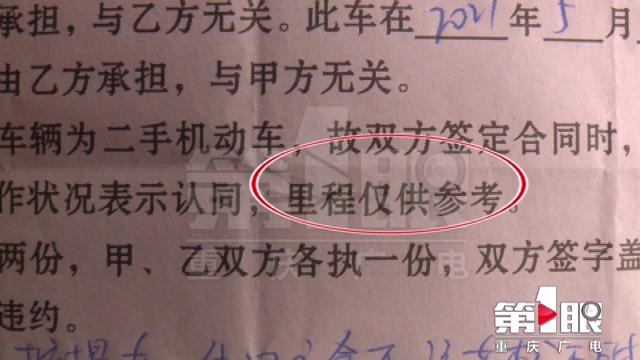 承担，与乙方无关。此车在2021年5月
由乙方承担，与甲方无关。
车辆为二手机动车，故双方签定合同时，
作状况表示认同，里程仅供参考。
两份，甲、乙双方各执一份，双方签字盖
违约。
第1眼
重庆广电
第1眼
重庆广电